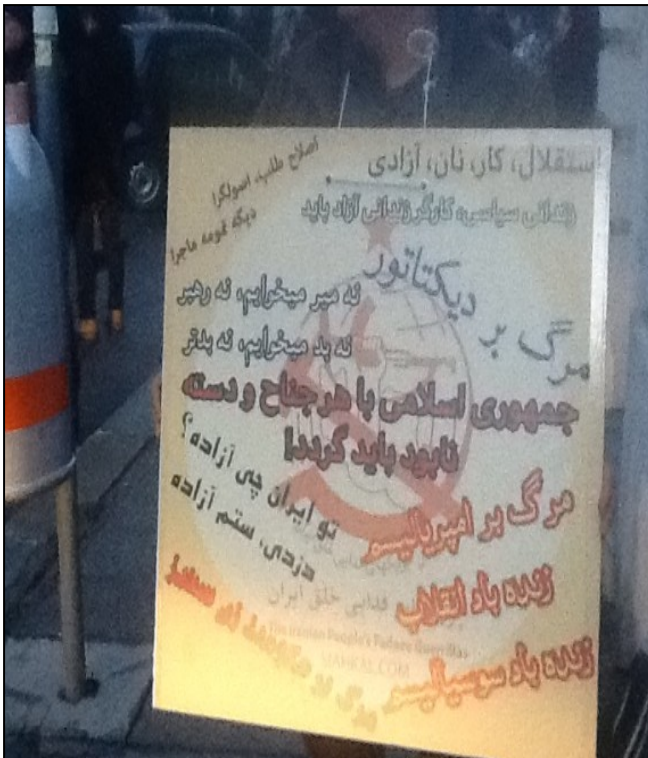 استقلال، کار، نان، آزادی
زندانی سیاسی، کارگر زندانی آزاد باید
اصلاح طلب، اصولگرا
دیگه تمومه ماجرا
مرگ بر دیکتاتور
نه میر میخوایم، نه رهبر
نه بد میخوایم، نه بدتر
جمهوری اسلامی با هر جناح و دسته
نابود باید گردد!
تو ایران چی آزاده؟
دزدی، ستم آزاده
مرگ بر امپریالیسم
زنده باد انقلاب
زنده باد سوسیالیسم
مرگ بر
فدایی خلق ایران
The Iranian People's Fadaee Guerrillas
SIAHKAL.COM